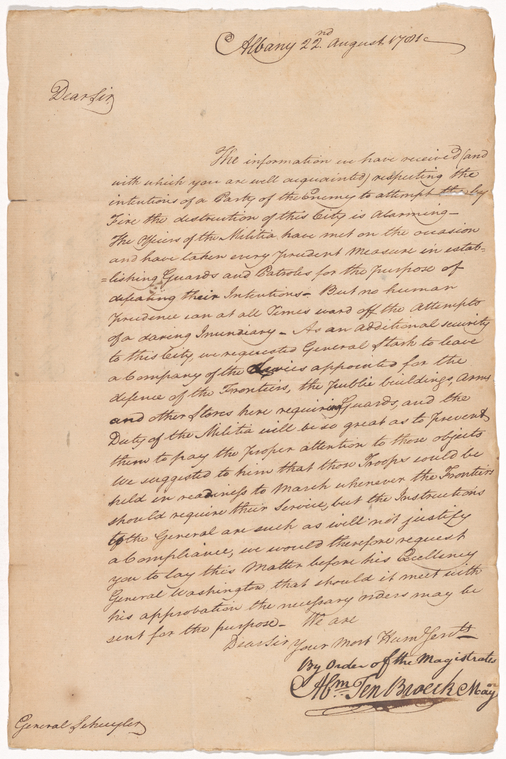 Albany 22nd August 1781
Dear Sir
The information we have received (and
with which you are well acquainted) respecting the
intentions of a Party of the Enemy to attempt by
Fire the distruction of this City is alarming—
The Officers of the Militia have met on the occasion
and have taken every prudent Measure in estab-
=lishing Guards and Patroles for the purpose of
defeating their Intentions— But no human
Prudence can at all Times ward off the Attempts
of a daring Incendiary— As an additional security
to this City, we requested General Stark to leave
a Company of the Levies appointed for the
defence of the Frontiers, the public buildings, Arms
and other Stores here requiring Guards, and the
Duty of the Militia will be so great as to prevent
them to pay the proper attention to those objects
We suggested to him that those Troops would be
held in readiness to March whenever the Frontiers
should require their Service, but the Instructions
to the General are such as will not justify
a Compliance, we would therefore request
you to lay this Matter before his Excellency
General Washington that should it meet with
his approbation the necessary orders may be
sent for the purpose— We are
Dear Sir Your Most Hum Servts
By Order of the Magistrates
Abm Ten Broeck May
General Schuyler